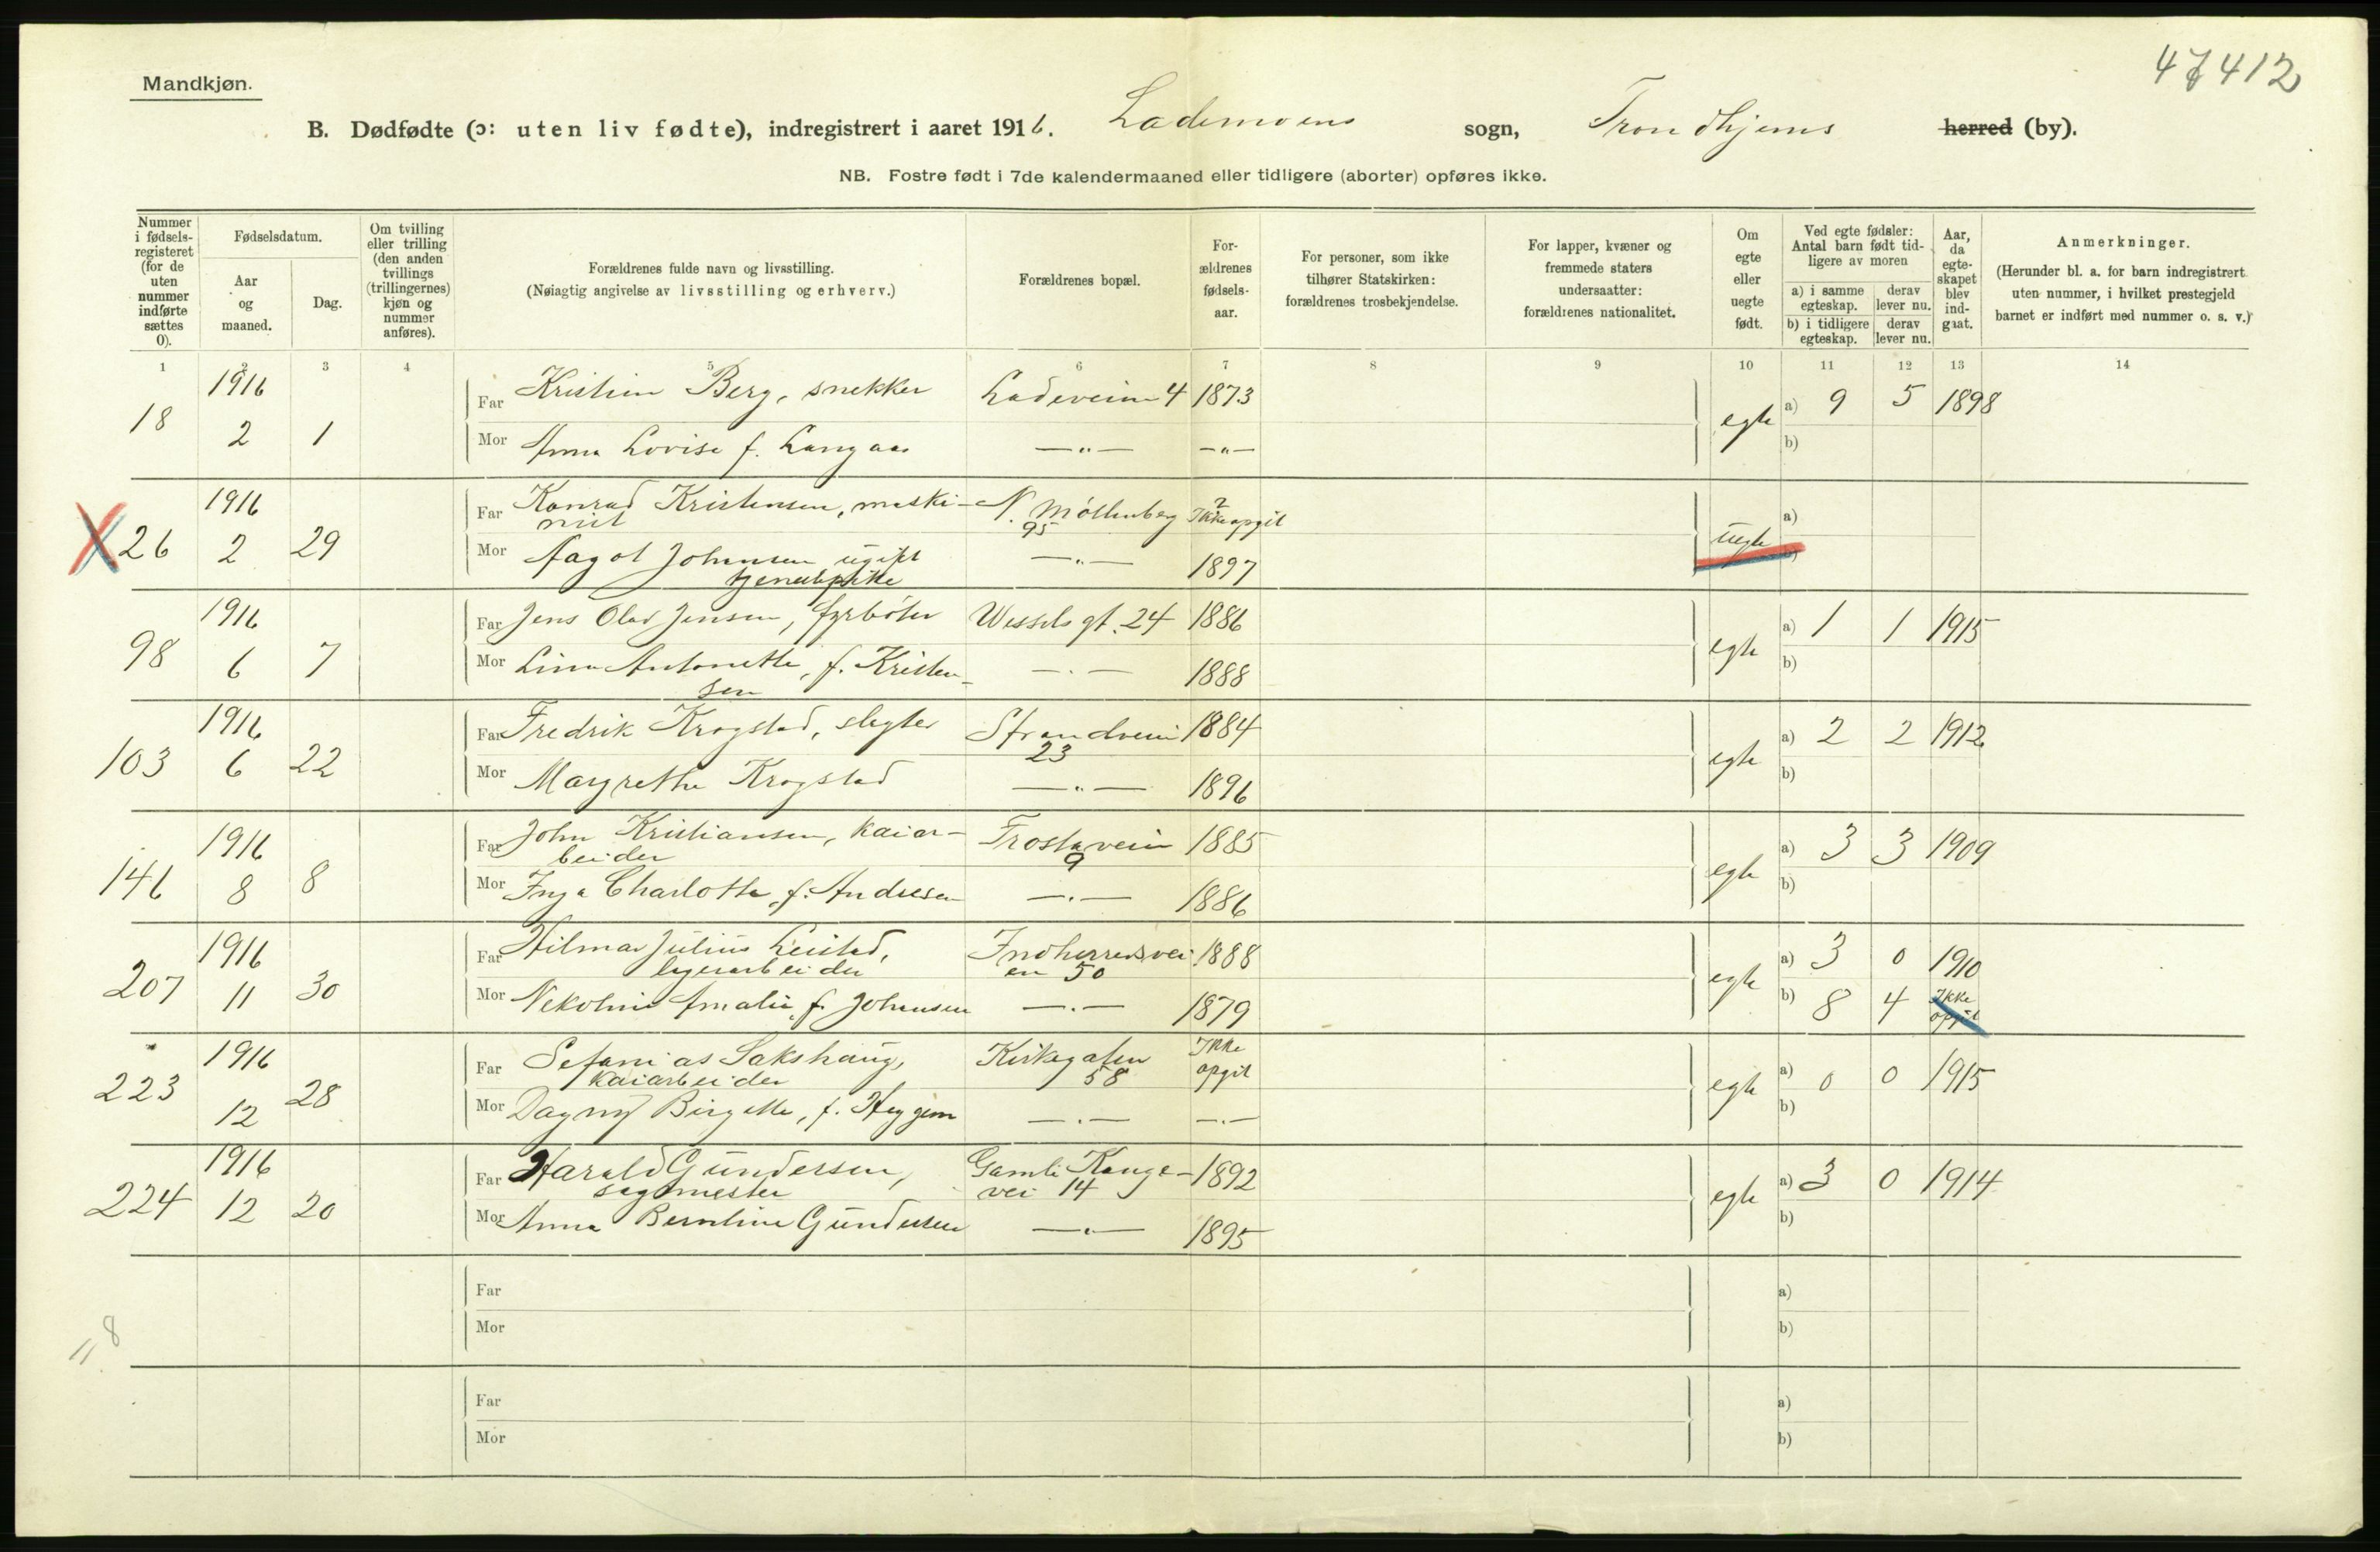 47412
Mandkjøn.
B. Dødfødte (ɔ: uten liv fødte), indregistrert i aaret 1916. Lademoens sogn, Trondhjems herred (by).
NB. Fostre født i 7de kalendermaaned eller tidligere (aborter) opføres ikke.
Nummer i fødsels-registeret (for de uten nummer indførte sættes 0).
Fødselsdatum.
Aar og maaned.
Dag.
Om tvilling eller trilling (den anden tvillings (trillingernes) kjøn og nummer anføres).
Forældrenes fulde navn og livsstilling.
(Nøiagtig angivelse av livsstilling og erhverv.)
Forældrenes bopæl.
For-ældrenes fødsels-aar.
For personer, som ikke tilhører Statskirken: forældrenes trosbekjendelse.
For lapper, kvæner og fremmede staters undersaatter: forældrenes nationalitet.
Om egte eller uegte født.
Ved egte fødsler: Antal barn født tid-ligere av moren
a) i samme egteskap. derav lever nu.
b) i tidligere egteskap. derav lever nu.
Aar, da egte-skapet blev ind-gaat.
Anmerkninger.
(Herunder bl. a. for barn indregistrert uten nummer, i hvilket prestegjeld barnet er indført med nummer o. s. v.)
1 2 3 4 5 6 7 8 9 10 11 12 13 14
18 1916 2 1 Far Kristian Berg, snekker Ladeveien 4 1873 egte a) 9 5 1898
Mor Anna Lovise f. Langaas —"— —"— b)
X 26 1916 2 29 Far Konrad Kristensen, maski-
nist N. Møllenberg 95 ? Ikke opgit uegte a)
Mor Aagot Johansen ugift
tjenestepike —"— 1897 b)
98 1916 6 7 Far Jens Olav Jensen, fyrbøter Wessels gt. 24 1886 egte a) 1 1 1915
Mor Lina Antonette, f. Kristen-
sen —"— 1888 b)
103 1916 6 22 Far Fredrik Krogstad, slagter Strandveien 23 1884 egte a) 2 2 1912
Mor Margrethe Krogstad —"— 1896 b)
146 1916 8 8 Far John Kristiansen, kaiar-
beider Frostaveien 9 1885 egte a) 3 3 1909
Mor Inga Charlotte, f. Andresen —"— 1886 b)
207 1916 11 30 Far Hilmar Julius Leistad,
lagerarbeider Indherredsvei-
en 50 1888 egte a) 3 0 1910
Mor Nekoline Amalie, f. Johansen —"— 1879 b) 8 4 Ikke opgit
223 1916 12 28 Far Sefanias Sakshaug,
kaiarbeider Kirkegaten 58 Ikke opgit egte a) 0 0 1915
Mor Dagny Birgitte, f. Heggem —"— —"— b)
224 1916 12 20 Far Harald Gundersen,
sagmester Gamle Konge-
vei 14 1892 egte a) 3 0 1914
Mor Anna Berntine Gundersen —"— 1895 b)
Far a)
Mor b)
8
Far a)
Mor b)